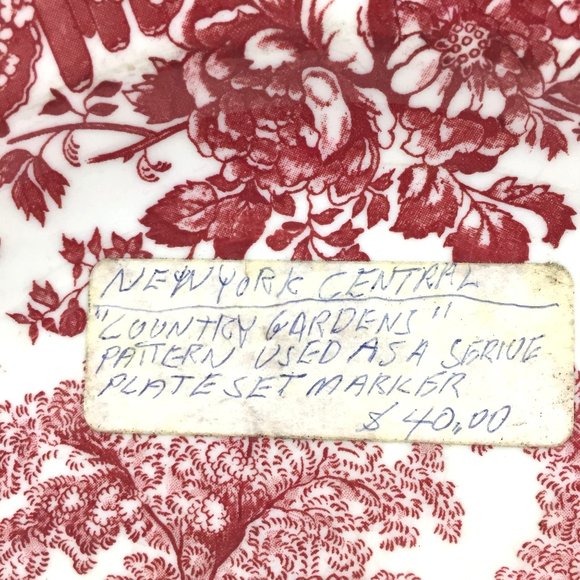 NEW YORK CENTRAL
"COUNTRY GARDENS"
PATTERN USED AS A SERIVE
PLATE SET MARKER
$ 40.00